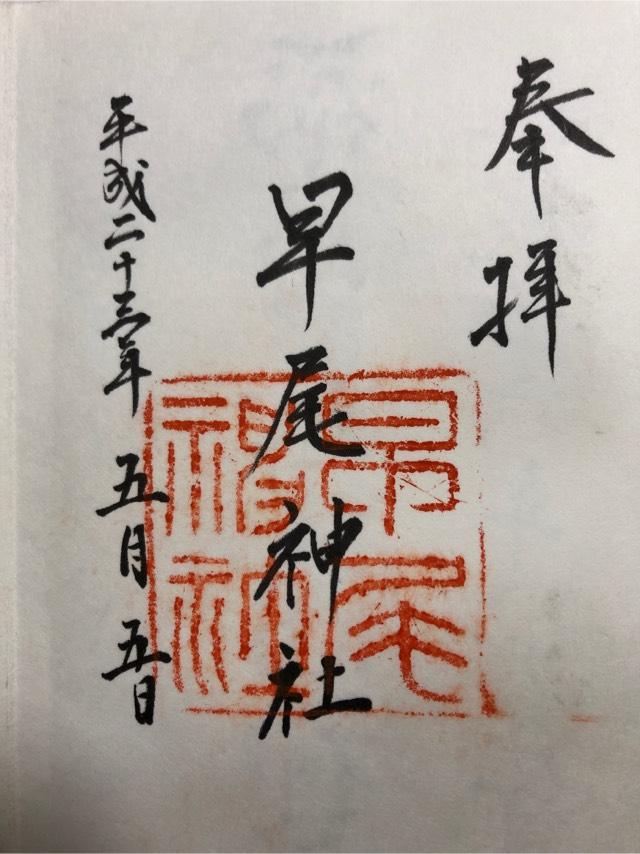 奉拝
早尾神社
早尾神社
平成二十三年 五月 五日